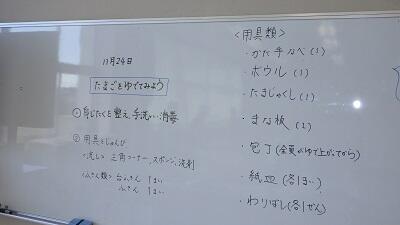 11月24日
たまごをゆでてみよう
① 身じたくを整え、手洗い・消毒
② 用具をじゅんび
<流し> 三角コーナー、スポンジ、洗剤
<ふきん類> 台ふきん 1まい
ふきん 1まい
<用具類>
・かた手なべ(1)
・ボウル(1)
・たまじゃくし(1)
・まな板(1)
・包丁(全員がゆで上がってから)
・紙皿(各1まい)
・わりばし(各1ぜん)